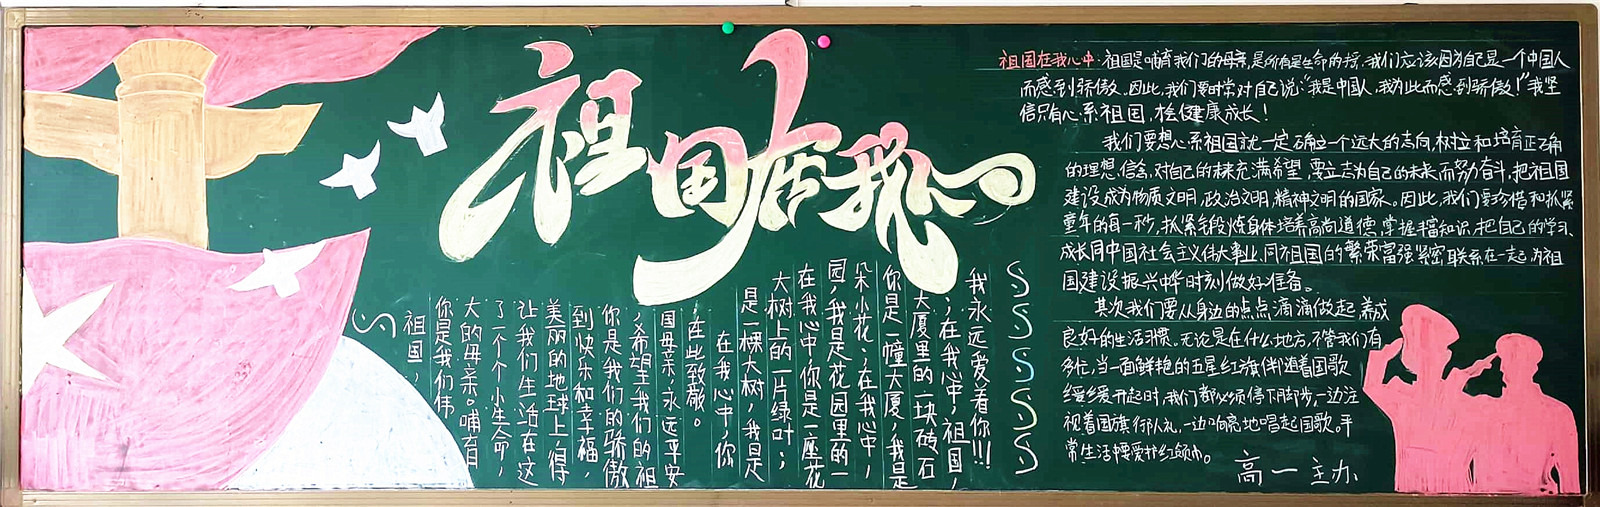 祖国在我心
祖国，
你是我们伟
大的母亲。哺育
了一个个小生命，
让我们生活在这
美丽的地球上，得
到快乐和幸福，
你是我们的骄傲
，希望我们的祖
国母亲，永远平安
，在此致敬。
在我心中，你
是一棵大树，我是
大树上的一片绿叶；
在我心中你是一座花
园，我是花园里的一
朵小花；在我心中，
你是一幢大厦，我是
大厦里的一块砖石
；在我心中，祖国，
我永远爱着你!!!
祖国在我心中：祖国是哺育我们的母亲，是所有是生命的摇，我们应该因为自己是一个中国人
而感到骄傲。因此，我们要时常对自己说：“我是中国人，我为此而感到骄傲！”我坚
信只有心系祖国，才会健康成长！
我们要想心系祖国就一定确立一个远大的志向，树立和培育正确
的理想信念，对自己的未来充满希望，要立志为自己的未来而努力奋斗，把祖国
建设成为物质文明，政治文明，精神文明的国家。因此，我们要珍惜和抓紧
童年的每一秒，抓紧锻炼身体培养高尚道德，掌握丰富知识，把自己的学习、
成长同中国社会主义伟大事业、同祖国的繁荣富强紧密联系在一起，为祖
国建设振兴中华时刻做好准备。
其次我们要从身边的点点滴滴做起，养成
良好的生活习惯。无论是在什么地方，不管我们有
多忙，当一面鲜艳的五星红旗伴随着国歌
缓缓开起时，我们都必须停下脚步，一边注
视着国旗行队礼，一边响亮地唱起国歌。平
常生活中要爱护红领巾。
高一 主办